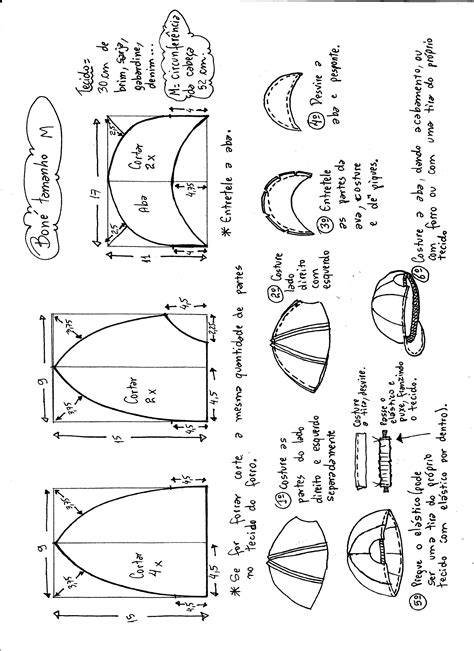 Boné tamanho M
Tecido =
30 cm de
brim, sarja,
gabardine,
denim...
M: circunferência
da cabeça
52 cm.
9
15
3,75
3,75
4,5
4,5
4,5
Cortar
4x
9
15
3,75
3,75
4,5
4,5
2,25
Cortar
2x
17
11
2,5
2,5
4
4
4,75
Aba
Cortar
2x
* Se for forrar corte a mesma quantidade de partes
no tecido do forro.
* Entretele a aba.
1º Costure as
partes do lado
direito e esquerdo
separadamente
2º Costure
lado
direito
com
esquerdo
3º Entretele
as partes da
ava, costure
e dê piques.
4º Desvire a
aba e pesponte.
5º Pregue o elástico (pode
ser uma tira do próprio
tecido com elástico por dentro).
Costure
a tira, desvire.
Passe o
elástico e
puxe, franzindo
o tecido.
6º Costure a aba, dando acabamento, ou
com forro ou com uma tira do próprio
tecido